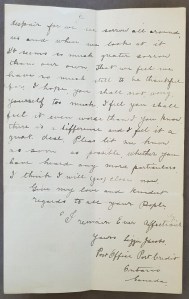 for we see sorrow all around
us and when we look at it
It seems so much greater sorrow
than our own that we feel we
have so much still to be thankful
for I hope you shall not worry
yourself too much I feel you shall
feel it even worse than you know
there is a difference and I feel it a
great deal. Please let me know
as soon as possible whether you
have heard any more particulars
I think I will close now
Give my love and kindest
regards to all your people
I remain Ever Affectionate
Yours Lizzie
Post Office Port Credit
Ontario
Canada